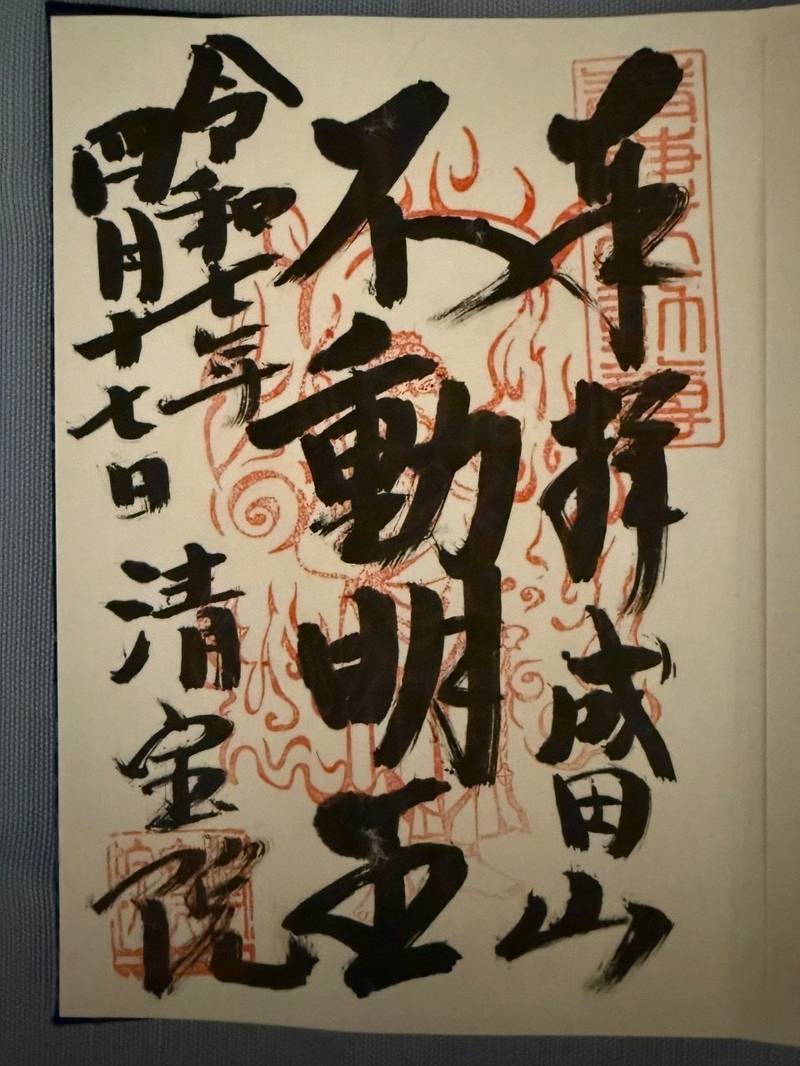 奉拝 成田山
不動明王
令和七年
四月十七日 清宝院